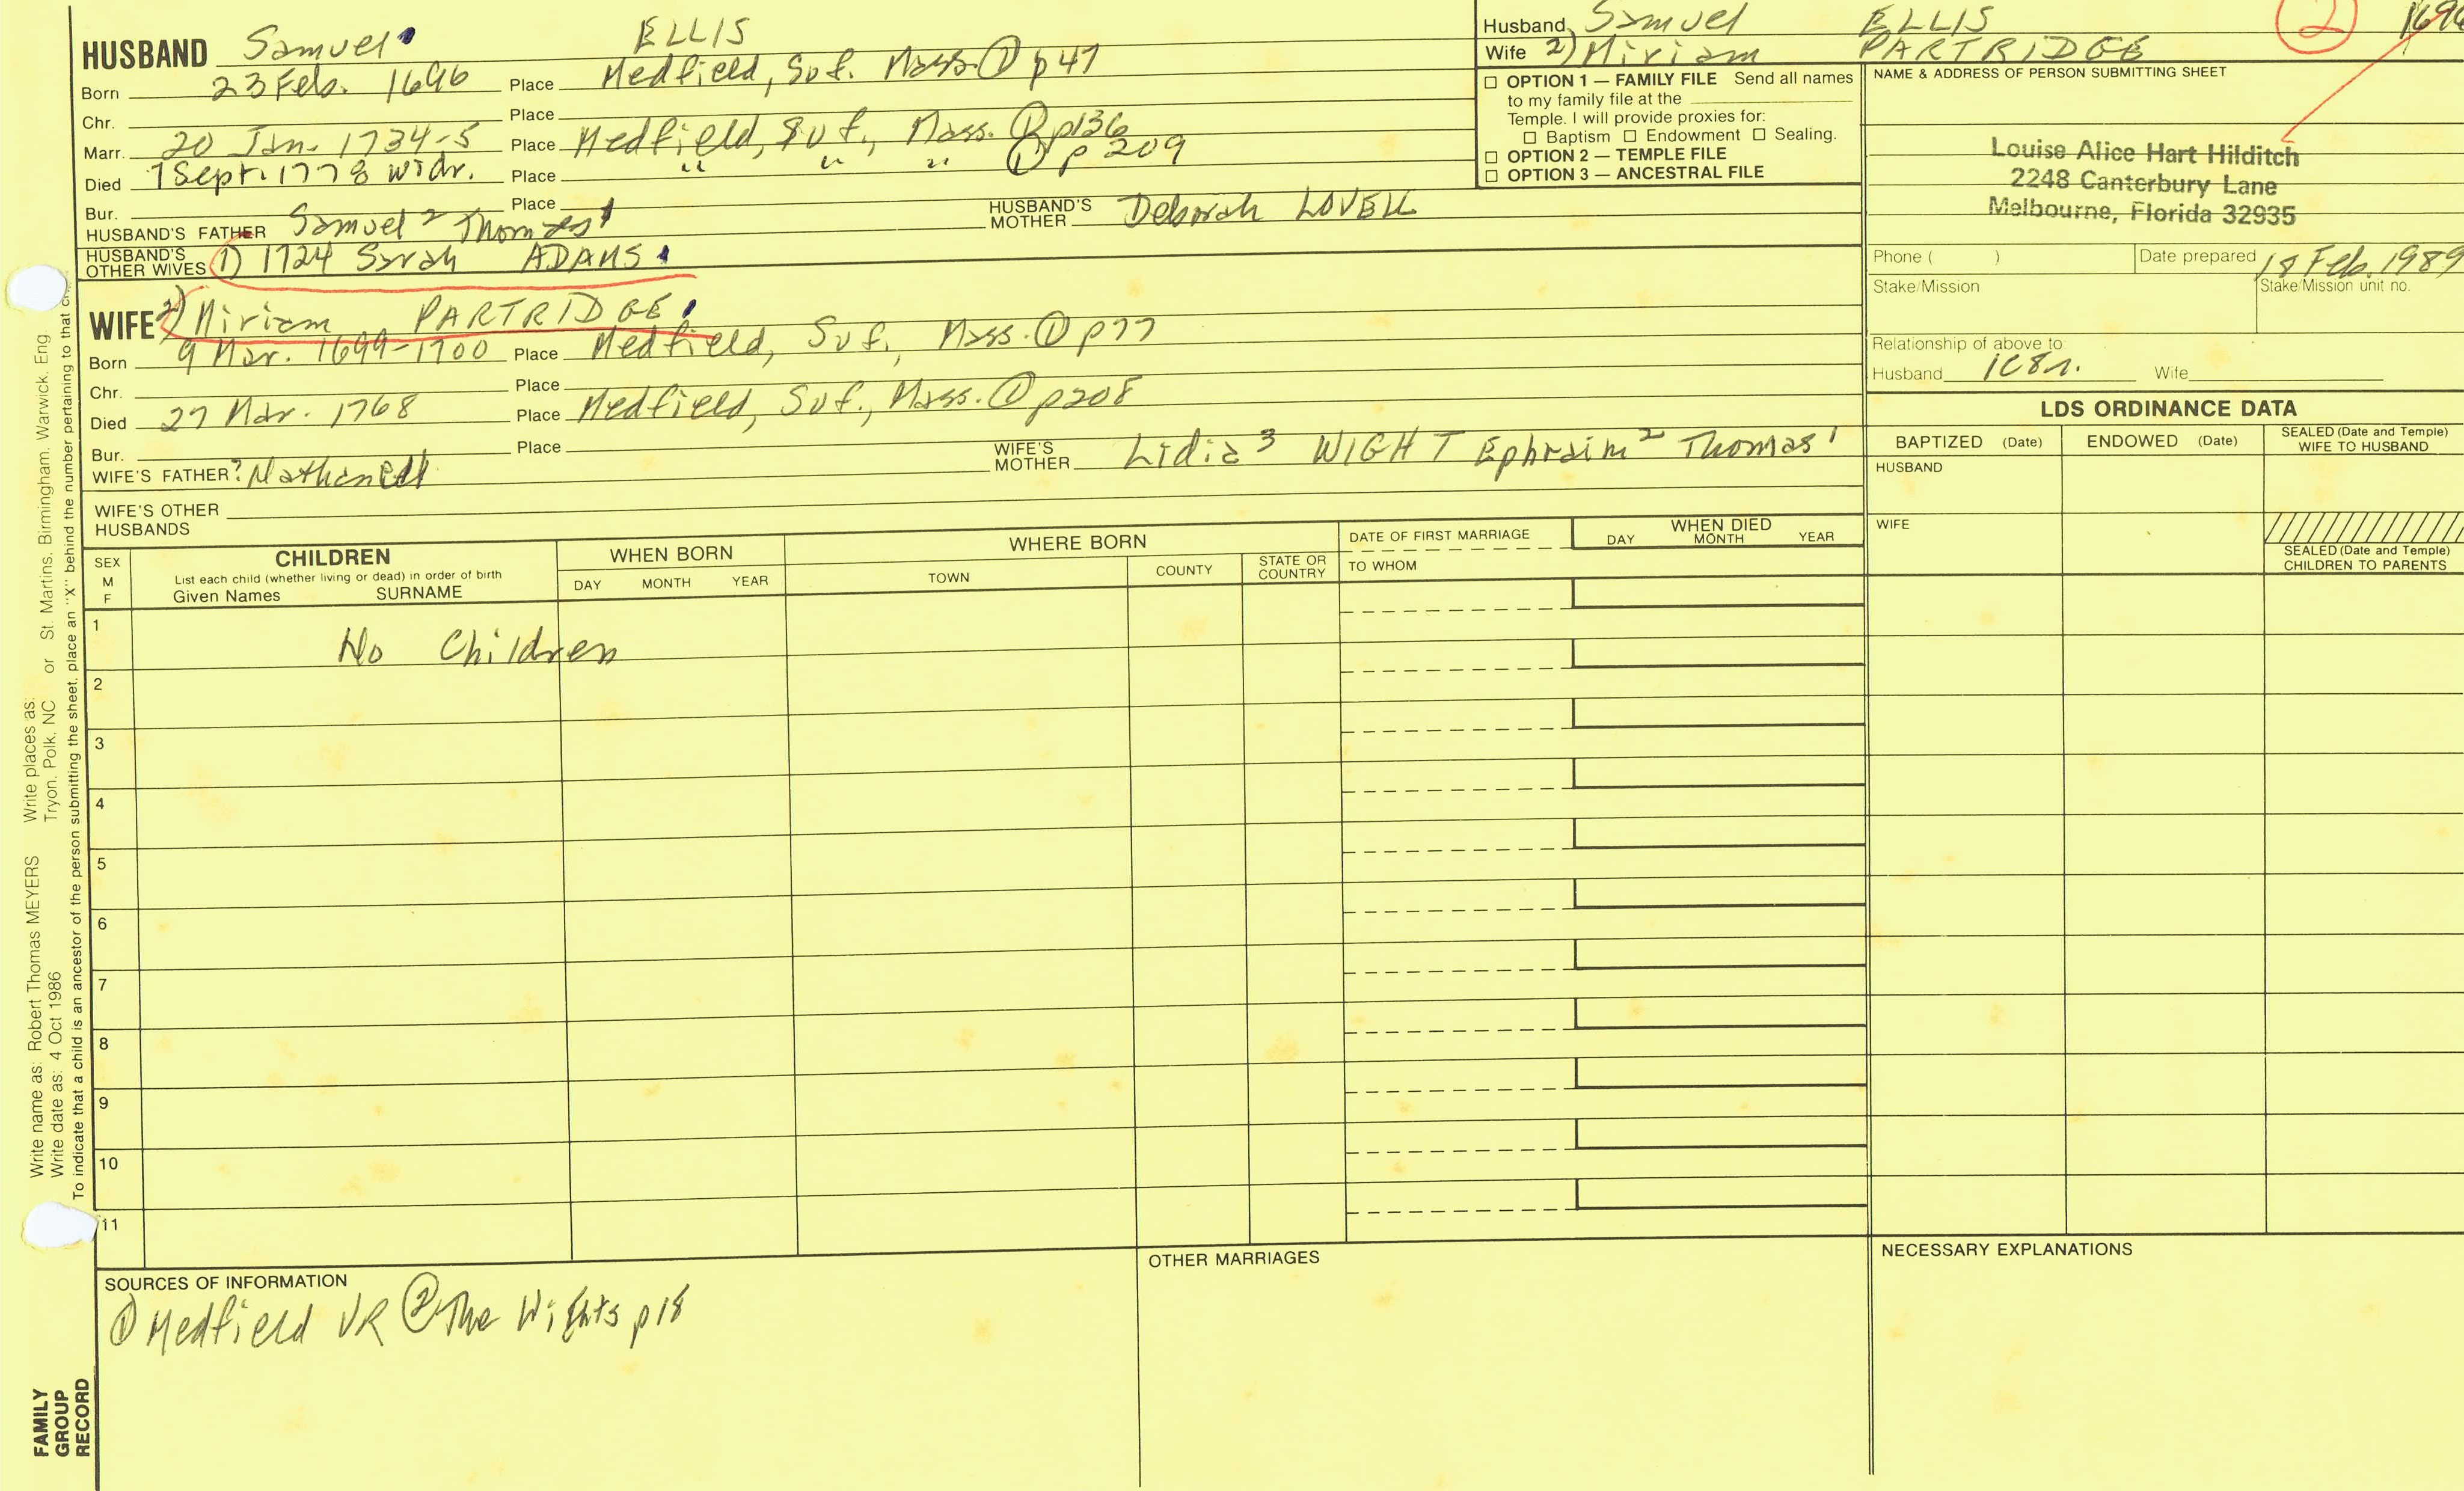 HUSBAND Samuel ELLIS
Born 23 Feb. 1696 Place Medfield, Suf. Mass. ① p47
Chr. Place
Marr. 20 Jan. 1734-5 Place Medfield, Suf., Mass. ① p136
Died 7 Sept. 1778 widr. Place " " " ① p209
Bur. Place
HUSBAND'S FATHER Samuel 2 Thomas 1 HUSBAND'S MOTHER Deborah LOVELL
HUSBAND'S OTHER WIVES 1) 1724 Sarah ADAMS
WIFE 2) Miriam PARTRIDGE
Born 9 Mar. 1699-1700 Place Medfield, Suf., Mass. ① p77
Chr. Place
Died 27 Mar. 1768 Place Medfield, Suf., Mass. ① p208
Bur. Place
WIFE'S FATHER ? Nathaniell WIFE'S MOTHER Lidia 3 WIGHT Ephraim 2 Thomas 1
WIFE'S OTHER HUSBANDS
Husband Samuel ELLIS ② 1696
Wife 2) Miriam PARTRIDGE
☐ OPTION 1 — FAMILY FILE Send all names
to my family file at the
Temple. I will provide proxies for:
☐ Baptism ☐ Endowment ☐ Sealing.
☐ OPTION 2 — TEMPLE FILE
☐ OPTION 3 — ANCESTRAL FILE
NAME & ADDRESS OF PERSON SUBMITTING SHEET
Louise Alice Hart Hilditch
2248 Canterbury Lane
Melbourne, Florida 32935
Phone ( ) Date prepared 18 Feb. 1989
Stake/Mission Stake/Mission unit no.
Relationship of above to:
Husband 1C8r. Wife
LDS ORDINANCE DATA
BAPTIZED (Date) ENDOWED (Date) SEALED (Date and Temple) WIFE TO HUSBAND
HUSBAND
WIFE
SEALED (Date and Temple)
CHILDREN TO PARENTS
SEX M F
CHILDREN
List each child (whether living or dead) in order of birth
Given Names SURNAME
WHEN BORN
DAY MONTH YEAR
WHERE BORN
TOWN COUNTY STATE OR COUNTRY
DATE OF FIRST MARRIAGE
TO WHOM
WHEN DIED
DAY MONTH YEAR
1 No Children
2
3
4
5
6
7
8
9
10
11
SOURCES OF INFORMATION
① Medfield VR ② The Wights p18
OTHER MARRIAGES
NECESSARY EXPLANATIONS
Write name as: Robert Thomas MEYERS Write places as:
Write date as: 4 Oct 1986 Tryon, Polk, NC or St. Martins, Birmingham, Warwick, Eng
To indicate that a child is an ancestor of the person submitting the sheet, place an "X" behind the number pertaining to that
FAMILY
GROUP
RECORD